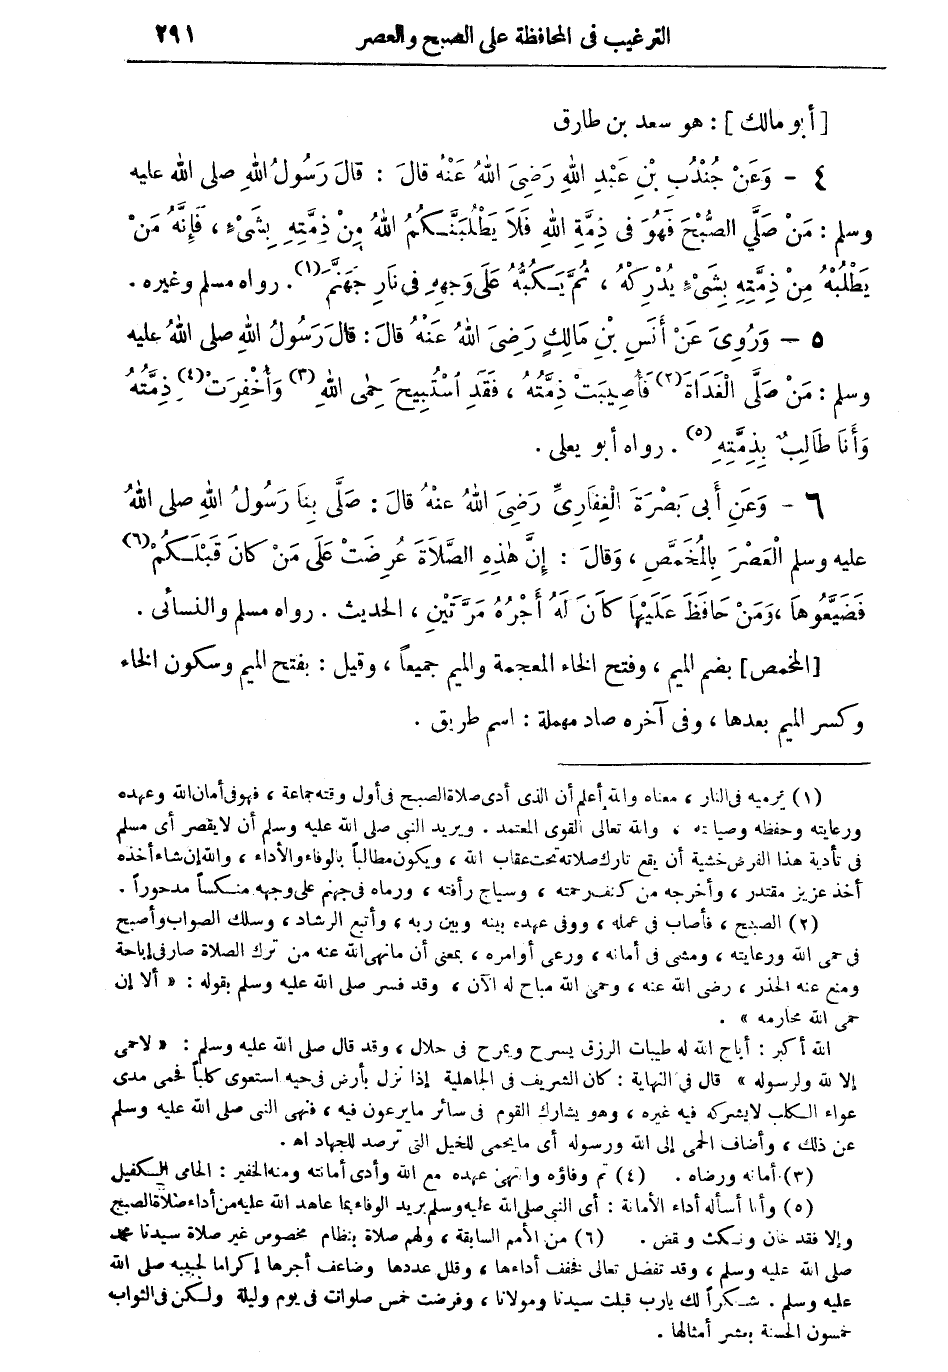 الترغيب فى المحافظة على الصبح والعصر ٢٩١
[أبو مالك] : هو سعد بن طارق
٤ - وَعَنْ جُنْدُبِ بْنِ عَبْدِ اللهِ رَضِىَ اللهُ عَنْهُ قَالَ : قَالَ رَسُولُ اللهِ صلى الله عليه
وسلم : مَنْ صَلَّي الصُّبْحَ فَهُوَ فى ذِمَّةِ اللهِ فَلَا يَطْلُبَنَّكُمُ اللهُ مِنْ ذِمَّتِهِ بِشَىْءٍ ، فَإِنَّهُ مَنْ
يَطْلُبْهُ مِنْ ذِمَّتِهِ بِشَىْءٍ يُدْرِكْهُ ، ثُمَّ يَكُبُّهُ عَلَى وَجْهِهِ فى نَارِ جَهَنَّمَ (١) . رواه مسلم وغيره .
٥ - وَرُوِىَ عَنْ أَنَسِ بْنِ مَالِكٍ رَضِىَ اللهُ عَنْهُ قَالَ : قَالَ رَسُولُ اللهِ صلى اللهُ عليه
وسلم : مَنْ صَلَّى الْغَدَاةَ (٢) فَأُصِيبَتْ ذِمَّتُهُ ، فَقَدِ اسْتُبِيحَ حِمَى اللهِ (٣) وَأُخْفِرَتْ (٤) ذِمَّتُهُ
وَأَنَا طَالِبٌ بِذِمَّتِهِ (٥) . رواه أبو يعلى .
٦ - وَعَنِ أَبى بَصْرَةَ الْغِفَارِىِّ رَضِىَ اللهُ عنْهُ قَالَ : صَلَّى بِنَا رَسُولُ اللهِ صلى اللهُ
عليه وسلم الْعَصْرَ بِالْمُخَمَّصِ ، وَقَالَ : إِنَّ هٰذِهِ الصَّلَاةَ عُرِضَتْ عَلَى مَنْ كَانَ قَبْلَكُمْ (٦)
فَضَيَّعُوهَا ، وَمَنْ حَافَظَ عَلَيْهَا كَانَ لَهُ أَجْرُهُ مَرَّتَيْنِ ، الحديث . رواه مسلم والنسائى .
[المخمص] بضم الميم ، وفتح الخاء المعجمة والميم جميعاً ، وقيل : بفتح الميم وسكون الخاء
وكسر الميم بعدها ، وفى آخره صاد مهملة : اسم طريق .
(١) يرميه فى النار ، معناه والله أعلم أن الذى أدى صلاة الصبح فى أول وقته جماعة ، فهو فى أمان الله وعهده
ورعايته وحفظه ، والله تعالى القوى المعتمد . ويريد النبى صلى الله عليه وسلم أن لا يقصر أى مسلم
فى تأدية هذا الفرض خشية أن يقع تارك صلاته تحت عقاب الله ، ويكون مطالباً بالوفاء والأداء ، والله إن شاء أخذه
أخذ عزيز مقتدر ، وأخرجه من كنف رحمته ، وسياج رأفته ، ورماه فى جهنم على وجهه منكساً مدحوراً .
(٢) الصبح ، فأصاب فى عمله ، ووفى عهده بينه وبين ربه ، وأتبع الرشاد ، وسلك الصواب وأصبح
فى حمى الله ورعايته ، ومشى فى أمانه ، ورعى أوامره ، بمعنى أن ما نهى الله عنه من ترك الصلاة صار فى إباحة
ومنع عنه الحذر ، رضى الله عنه ، وحمى الله مباح له الآن ، وقد فسر صلى الله عليه وسلم بقوله : « ألا إن
حمى الله محارمه » .
الله أكبر : أباح الله له طيبات الرزق يسرح ويمرح فى حلال ، وقد قال صلى الله عليه وسلم : « لا حمى
إلا لله ولرسوله » قال فى النهاية : كان الشريف فى الجاهلية إذا نزل بأرض فى حيه استعوى كلباً فحمى مدى
عواء الكلب لا يشركه فيه غيره ، وهو يشارك القوم فى سائر ما يرعون فيه ، فنهى النبى صلى الله عليه وسلم
عن ذلك ، وأضاف الحمى إلى الله ورسوله أى ما يحمى للخيل التى ترصد للجهاد اه .
(٣) أمانه ورضاه . (٤) تم وفاؤه وانتهى عهده مع الله وأدى أمانته ومنه الخفير : الحامى الكفيل
(٥) وأنا أسأله أداء الأمانة : أى النبى صلى الله عليه وسلم يريد الوفاء بما عاهد الله عليه من أداء صلاة الصبح
وإلا فقد خان ونكث ونقض . (٦) من الأمم السابقة ، ولهم صلاة بنظام مخصوص غير صلاة سيدنا محمد
صلى الله عليه وسلم ، وقد تفضل تعالى فخفف أداءها ، وقلل عددها وضاعف أجرها إكراما لحبيبه صلى الله
عليه وسلم . شكراً لك يارب قبلت سيدنا ومولانا ، وفرضت خمس صلوات فى يوم وليلة ولكن فى الثواب
خمسون الحسنة بعشر أمثالها .